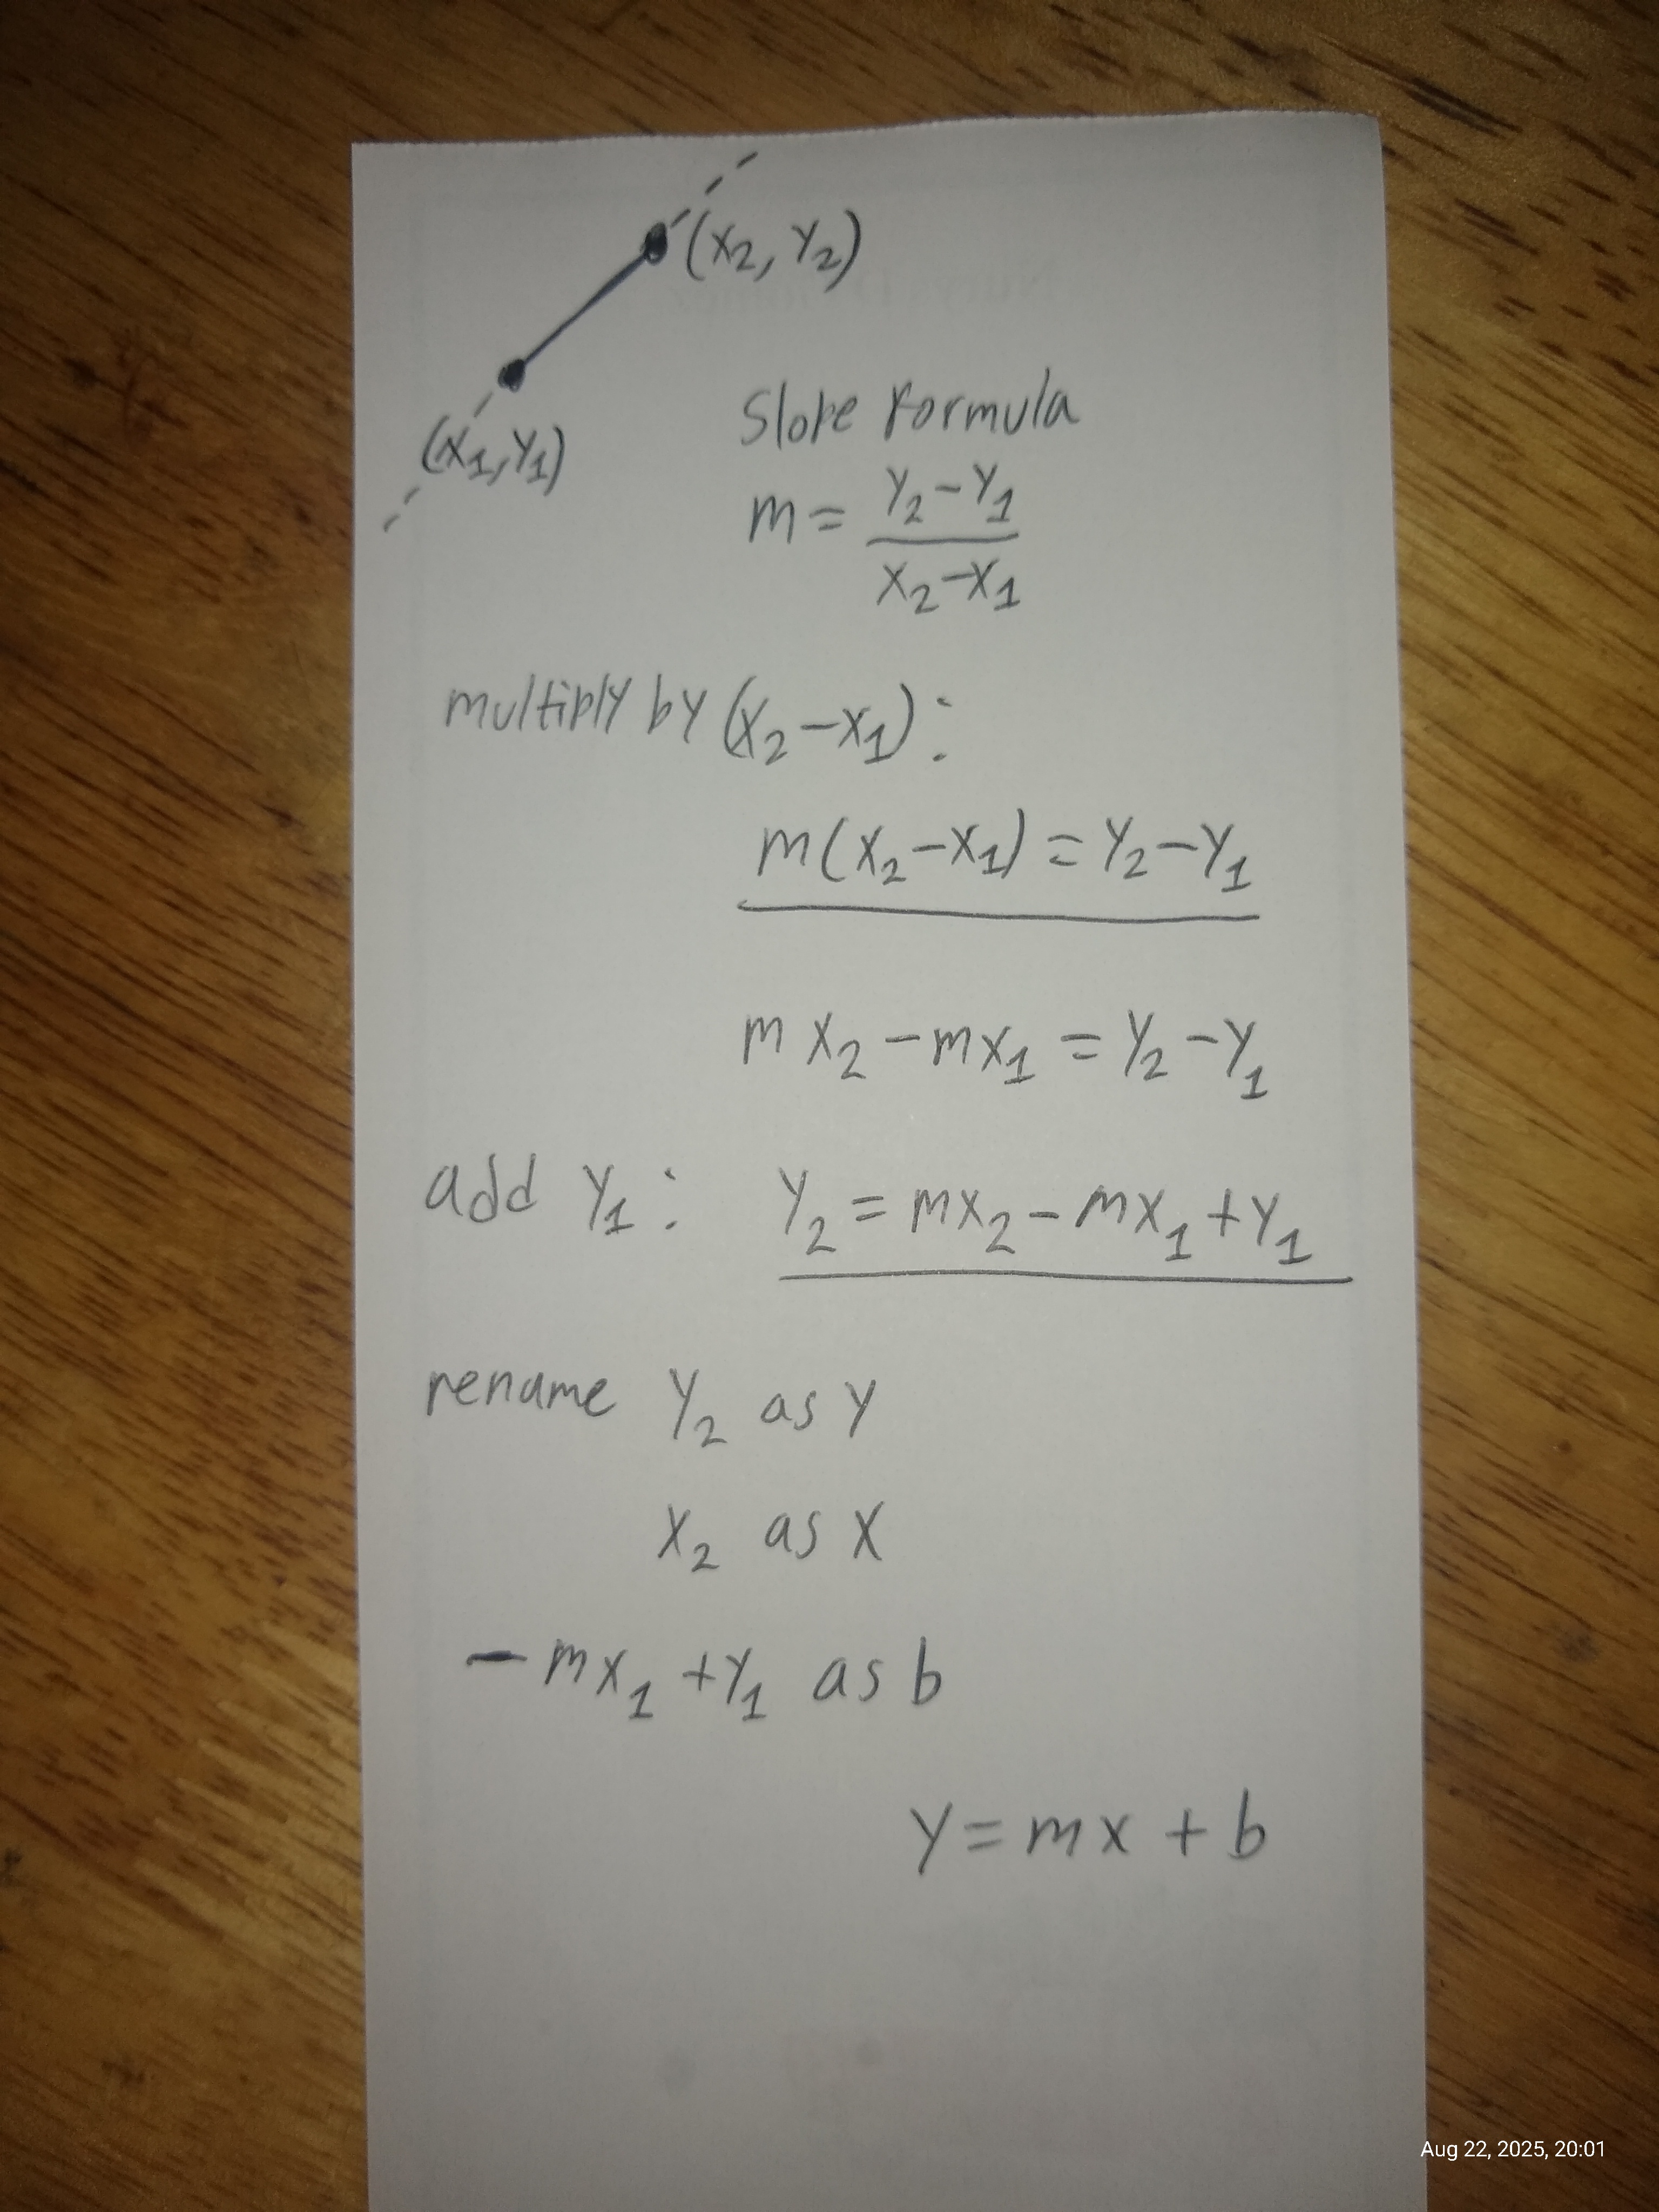 (x₂, y₂)
(x₁, y₁)
Slope Formula
m = (y₂-y₁)/(x₂-x₁)
multiply by (x₂-x₁):
m(x₂-x₁) = y₂-y₁
mx₂-mx₁ = y₂-y₁
add y₁: y₂ = mx₂-mx₁+y₁
rename y₂ as y
x₂ as x
-mx₁+y₁ as b
y = mx + b
Aug 22, 2025, 20:01